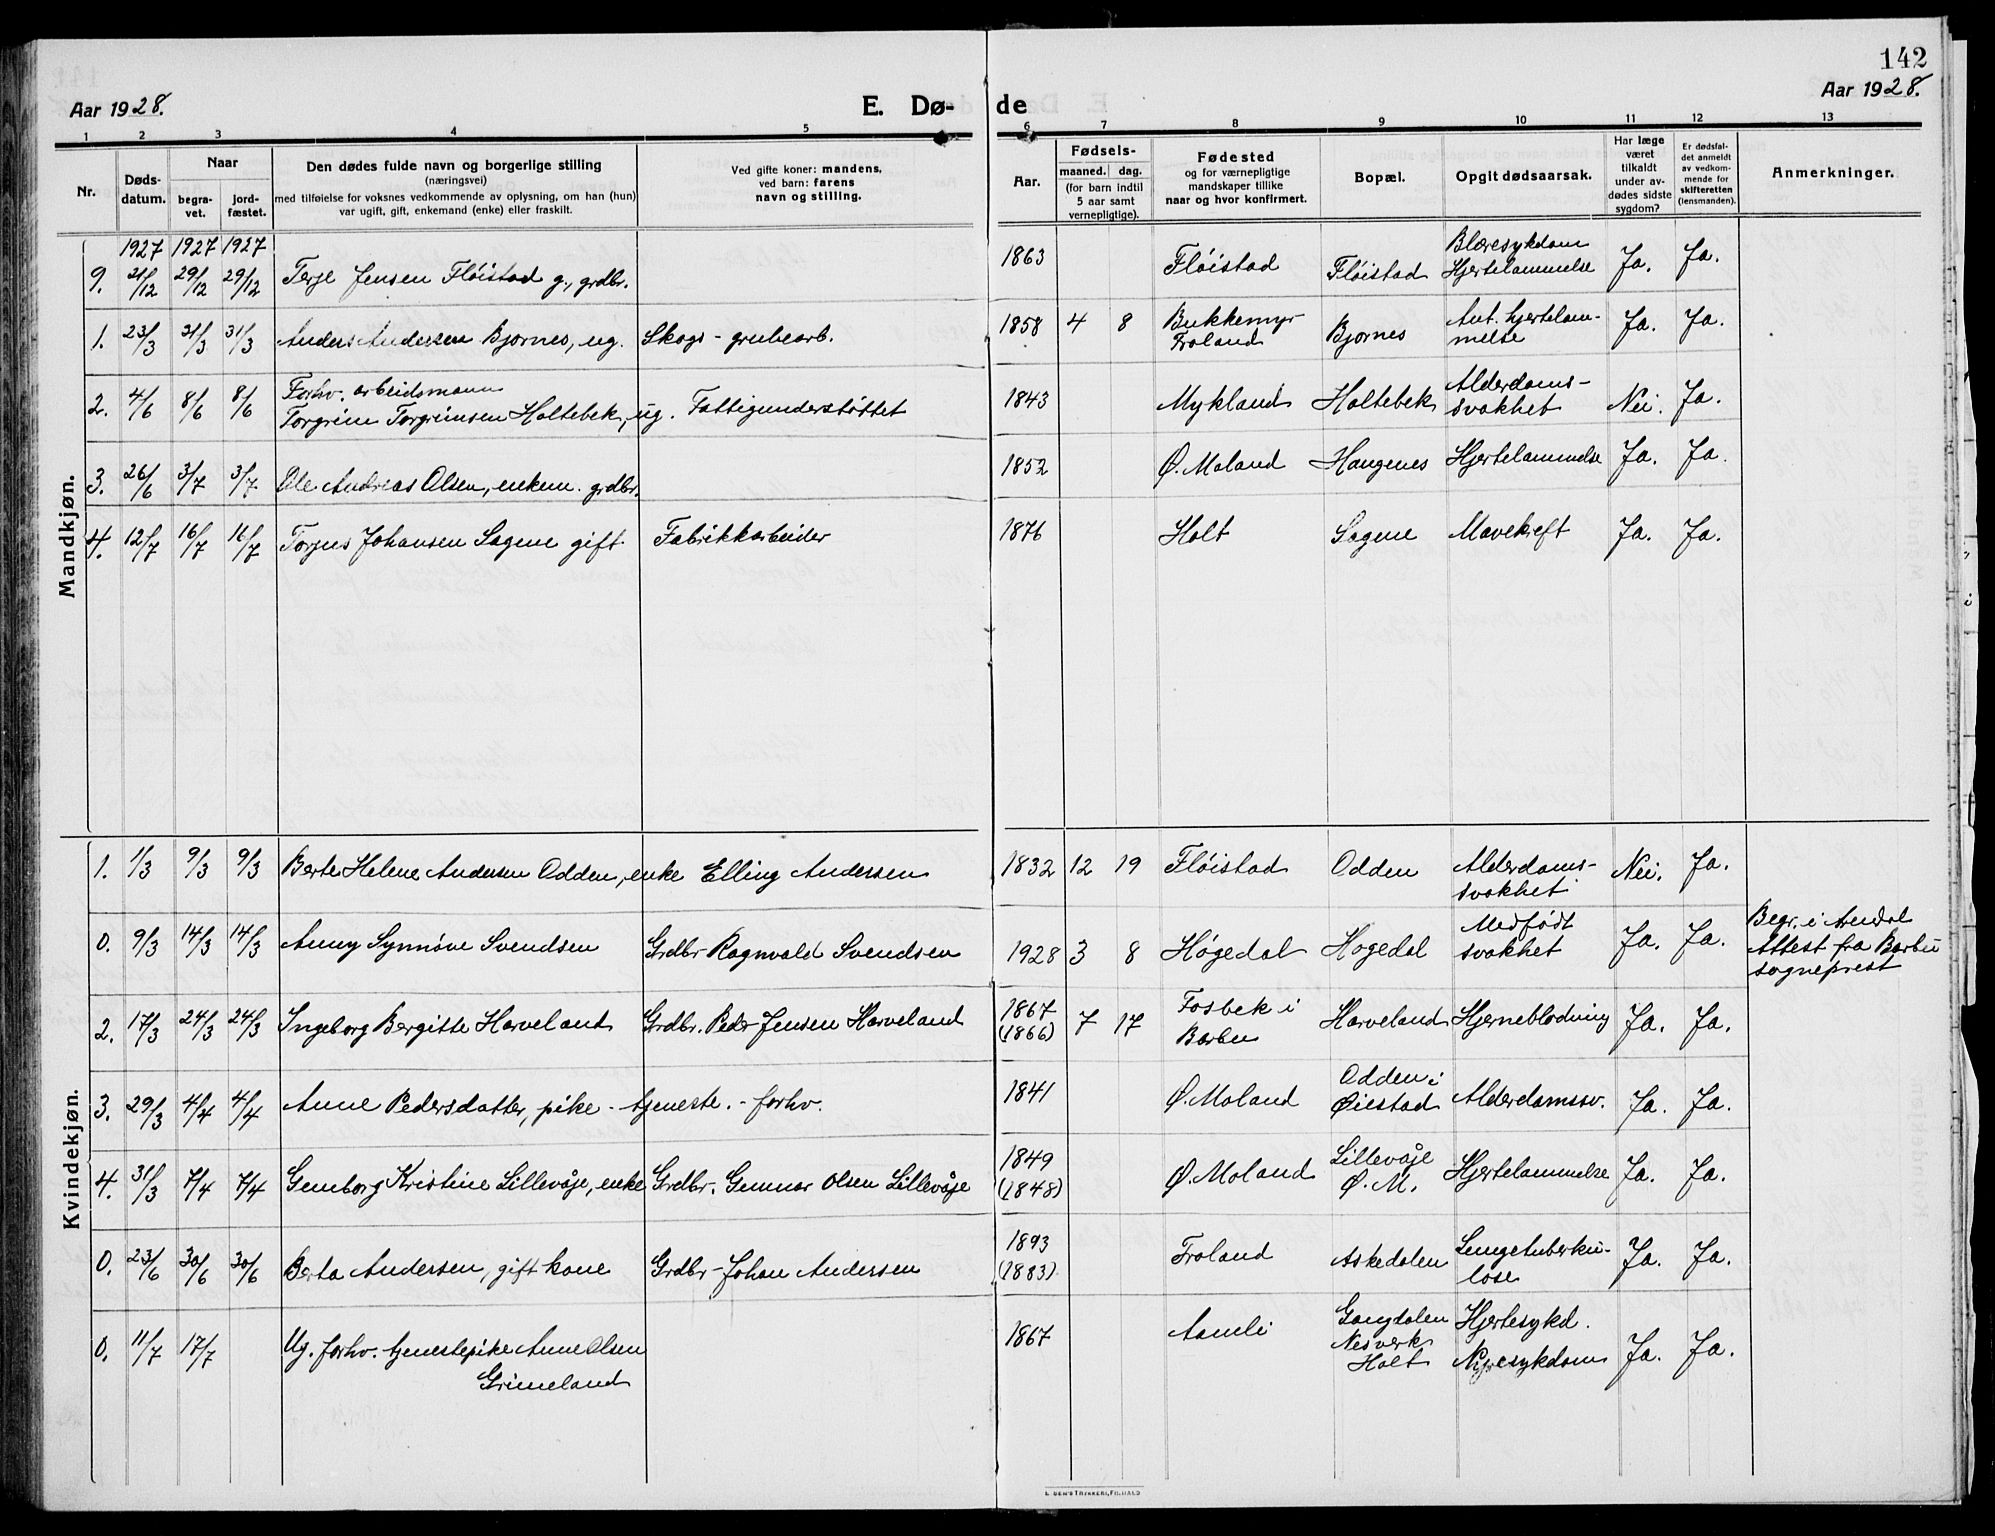 142
Aar 1928.
E. Dø-
de
Aar 1928.
1 2 3 4 5 6 7 8 9 10 11 12 13
Nr.
Døds-
datum.
Naar
begra-
vet.
jord-
fæstet.
Den dødes fulde navn og borgerlige stilling
(næringsvei)
med tilføielse for voksnes vedkommende av oplysning, om han (hun)
var ugift, gift, enkemand (enke) eller fraskilt.
Ved gifte koner: mandens,
ved barn: farens
navn og stilling.
Aar.
Fødsels-
maaned. dag.
(for barn indtil
5 aar samt
vernepligtige).
Fødested
og for værnepligtige
mandskaper tillike
naar og hvor konfirmert.
Bopæl.
Opgit dødsaarsak.
Har læge
været
tilkaldt
under av-
dødes sidste
sygdom?
Er dødsfal-
det anmeldt
av vedkom-
mende for
skifteretten
(lensmanden).
Anmerkninger.
Mandkjøn.
1927 1927 1927
9. 21/12 29/12 29/12 Terje Jensen Fløistad g., grdbr. 1863 Fløistad Fløistad Blæresykdom
Hjertelammelse Ja. Ja.
1. 23/3 31/3 31/3 Anders Andersen Bjornes, ug. Skogs - grubearb. 1858 4 8 Bukkemyr
Froland Bjornes Ant. hjertelam-
melse Ja. Ja.
2. 4/6 8/6 8/6 Forhv. arbeidsmann
Torgrim Torgrimsen Holtebek, ug. Fattigunderstøttet 1843 Mykland Holtebek Alderdoms-
svakhet Nei. Ja.
3. 26/6 3/7 3/7 Ole Andreas Olsen, enkem. grdbr. 1852 Ø. Moland Haugenes Hjertelammelse Ja. Ja.
4. 12/7 16/7 16/7 Torjus Johansen Sagene gift. Fabrikkarbeider 1876 Holt Sagene Mavekreft Ja. Ja.
Kvindekjøn.
1. 1/3 9/3 9/3 Berte Helene Andersen Odden, enke Elling Andersen 1832 12 19 Fløistad Odden Alderdoms-
svakhet Nei. Ja.
0. 9/3 14/3 14/3 Anny Synnøve Svendsen Grdbr Ragnvald Svendsen 1928 3 8 Høgedal Høgedal Medfødt
svakhet Ja. Ja. Begr. i Arendal
Attest fra Barbu
sogneprest
2. 17/3 24/3 24/3 Ingeborg Bergitte Harveland Grdbr. Peder Jensen Harveland 1867
(1866) 7 17 Fosbek i
Barbu Harveland Hjerneblødning Ja. Ja.
3. 29/3 4/4 4/4 Anne Pedersdatter, pike - tjeneste. - forhv. 1841 Ø. Moland Odden i
Øiestad Alderdomssv. Ja. Ja.
4. 31/3 7/4 7/4 Gunborg Kristine Lillevåje, enke Grdbr. Gunnar Olsen Lillevåje 1849
(1848) Ø. Moland Lillevåje
Ø. M. Hjertelammelse Ja. Ja.
0. 23/6 30/6 30/6 Berta Andersen, gift kone Grdbr - Johan Andersen 1893
(1883) Froland Askedalen Lungetuberku-
lose Ja. Ja.
0. 11/7 17/7 Ug. forhv. tjenestepike Anne Olsen
Grimeland 1867 Aamli Gangdalen
Nesverk
Holt Hjertesykd.
Nyresykdom Ja. Ja.